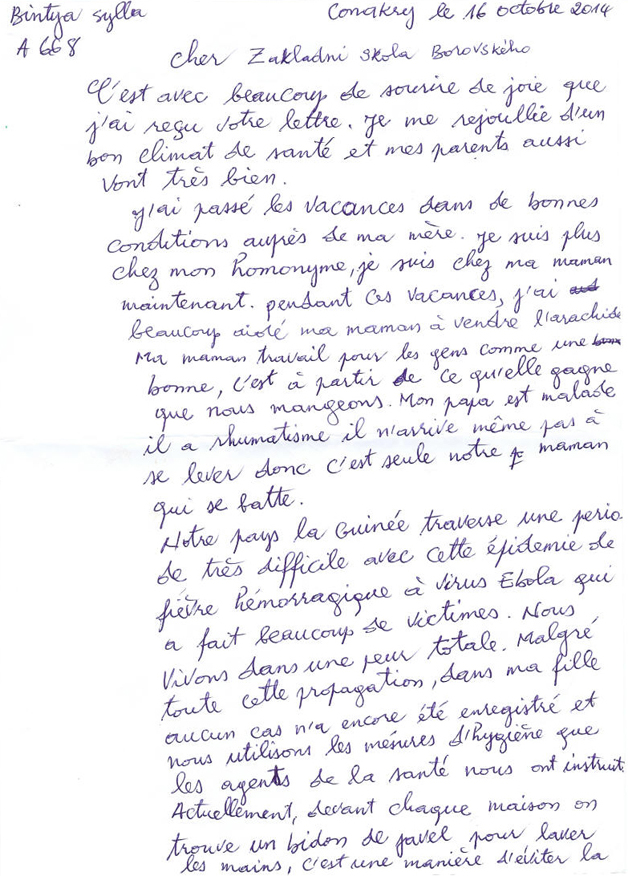 Bintya Sylla
Conakry le 16 octobre 2014
A 668
cher Zakladni skola Borovského
C'est avec beaucoup de sourire de joie que
j'ai reçu votre lettre. je me rejoullie d'un
bon climat de santé et mes parents aussi
vont très bien.
J'ai passé les vacances dans de bonnes
conditions auprès de ma mère. je suis plus
chez mon homonyme, je suis chez ma maman
maintenant. pendant ces vacances, j'ai
beaucoup aidé ma maman à vendre l'arachide
Ma maman travail pour les gens comme une
bonne, c'est à partir de ce qu'elle gagne
que nous mangeons. Mon papa est malade
il a rhumatisme il n'arrive même pas à
se lever donc c'est seule notre maman
qui se batte.
Notre pays la Guinée traverse une perio
de très difficile avec cette épidemie de
fièvre hémorragique à virus Ebola qui
a fait beaucoup de victimes. Nous
vivons dans une peur totale. Malgré
toute cette propagation, dans ma fille
aucun cas n'a encore été enregistré et
nous utilisons les mésures d'hygiène que
les agents de la santé nous ont instruit.
Actuellement, devant chaque maison on
trouve un bidon de javel pour laver
les mains, c'est une manière d'éviter la